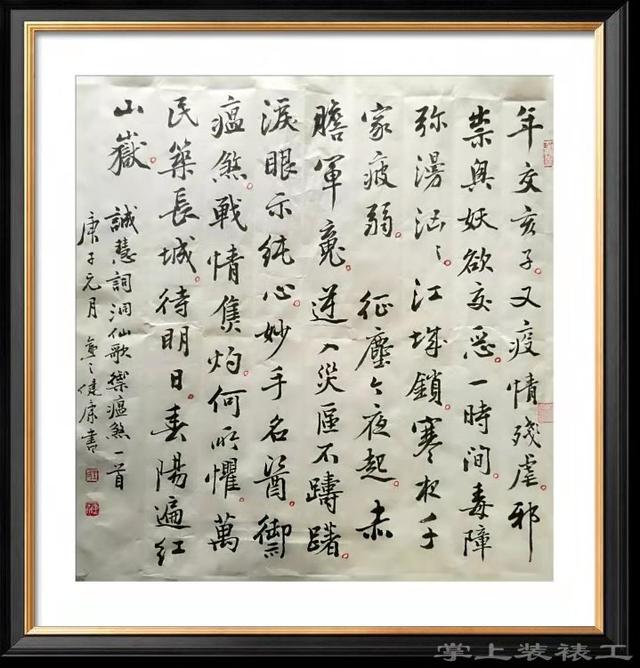 年交亥子。又疫情殘虐。邪
祟與妖欲交惡。一時間。毒障
弥漫〻江城鎖。寒千
家疲弱。征塵今夜起。赤
膽軍魂。逆入災區不躊躇。
淚眼示純心。妙手名醫。御
瘟煞。戰情焦灼。何所懼。萬
民築長城。待明日。春陽遍紅
山嶽。
誠慧詞洞仙歌禦瘟煞一首
庚子元月 健康書
掌上装裱工